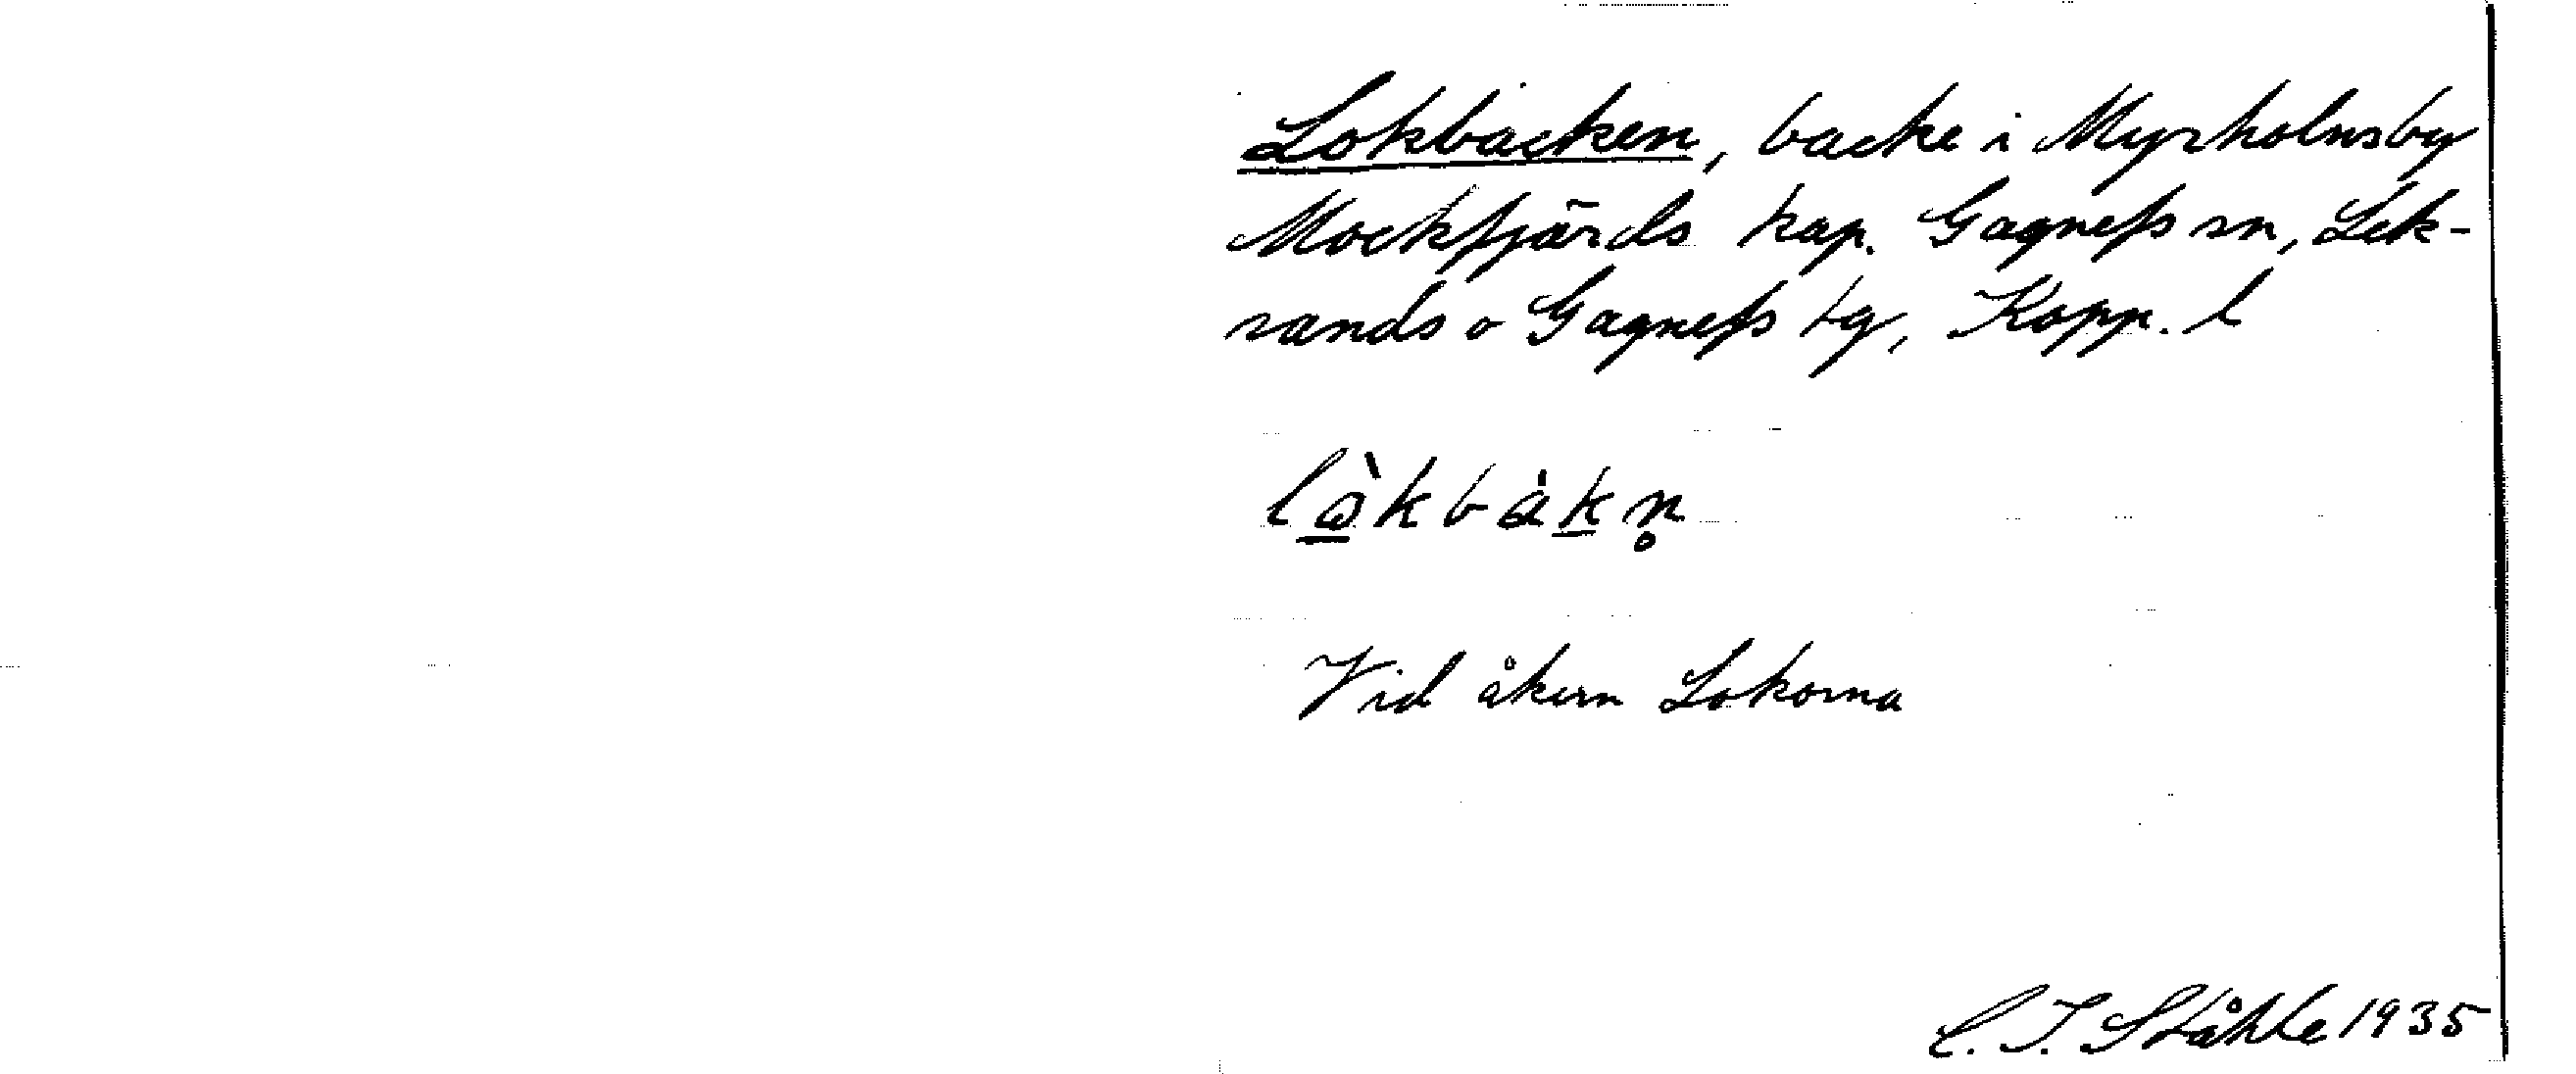 Lokbacken, backe i Myrholnsby
Mockfjärds kap. Gagnefs sn, Lek-
sands o Gagnefs tg, Kopp. l
lò̲kbàk̲n̥
Vid åkern Lokorna
C. I. Ståhle 1935